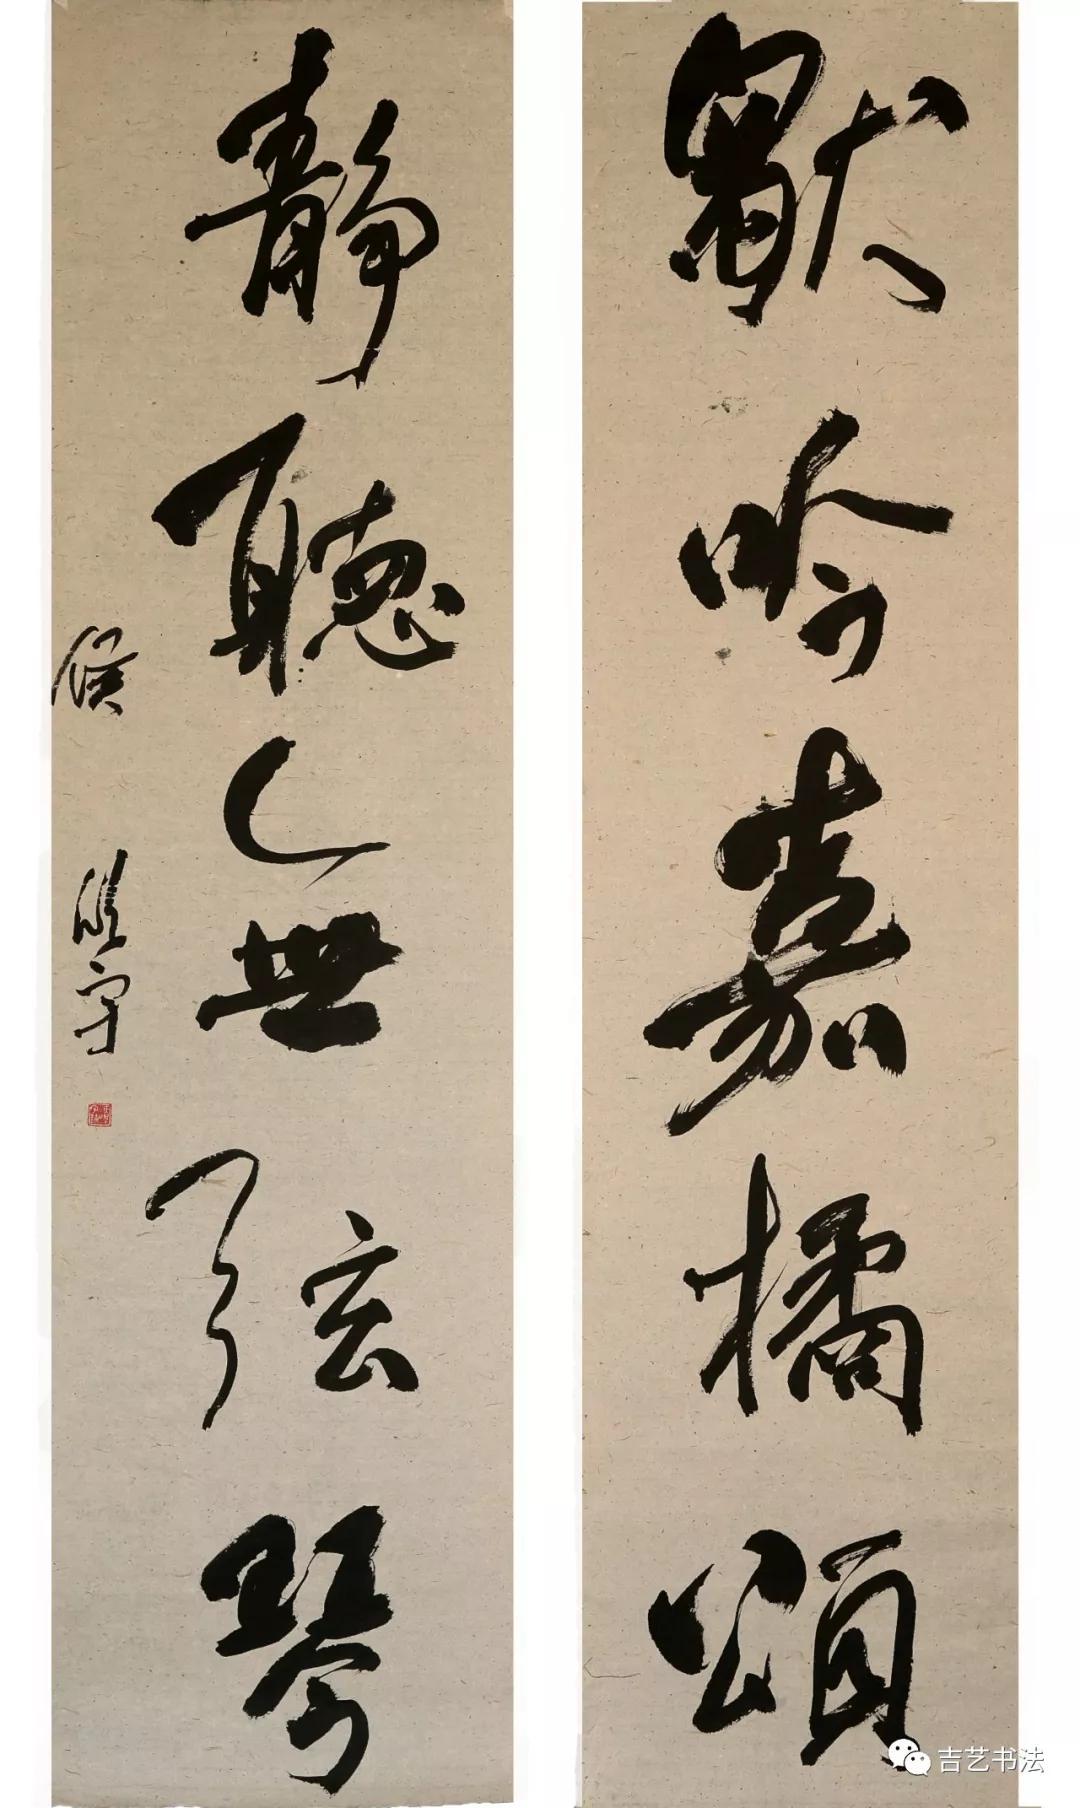 默吟嘉橘頌
靜聽無弦琴
侯
吉艺书法